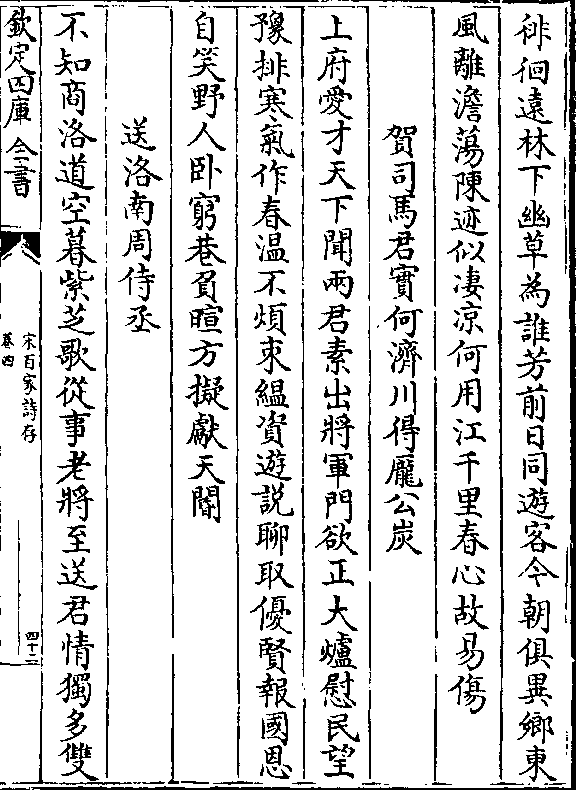 徘徊遠林下幽草為誰芳前日同遊客今朝俱異鄉東
風離澹蕩陳迹似凄凉何用江千里春心故易傷
賀司馬君實何濟川得龐公炭
上府愛才天下聞兩君素出將軍門欲正大爐慰民望
豫排寒氣作春温不煩朿緼資遊説聊取優賢報國恩
自笑野人卧窮巷負暄方擬獻天閽
送洛南周侍丞
不知商洛道空暮紫芝歌從事老將至送君情獨多雙
欽定四庫全書
宋百家詩存
卷四
四十二